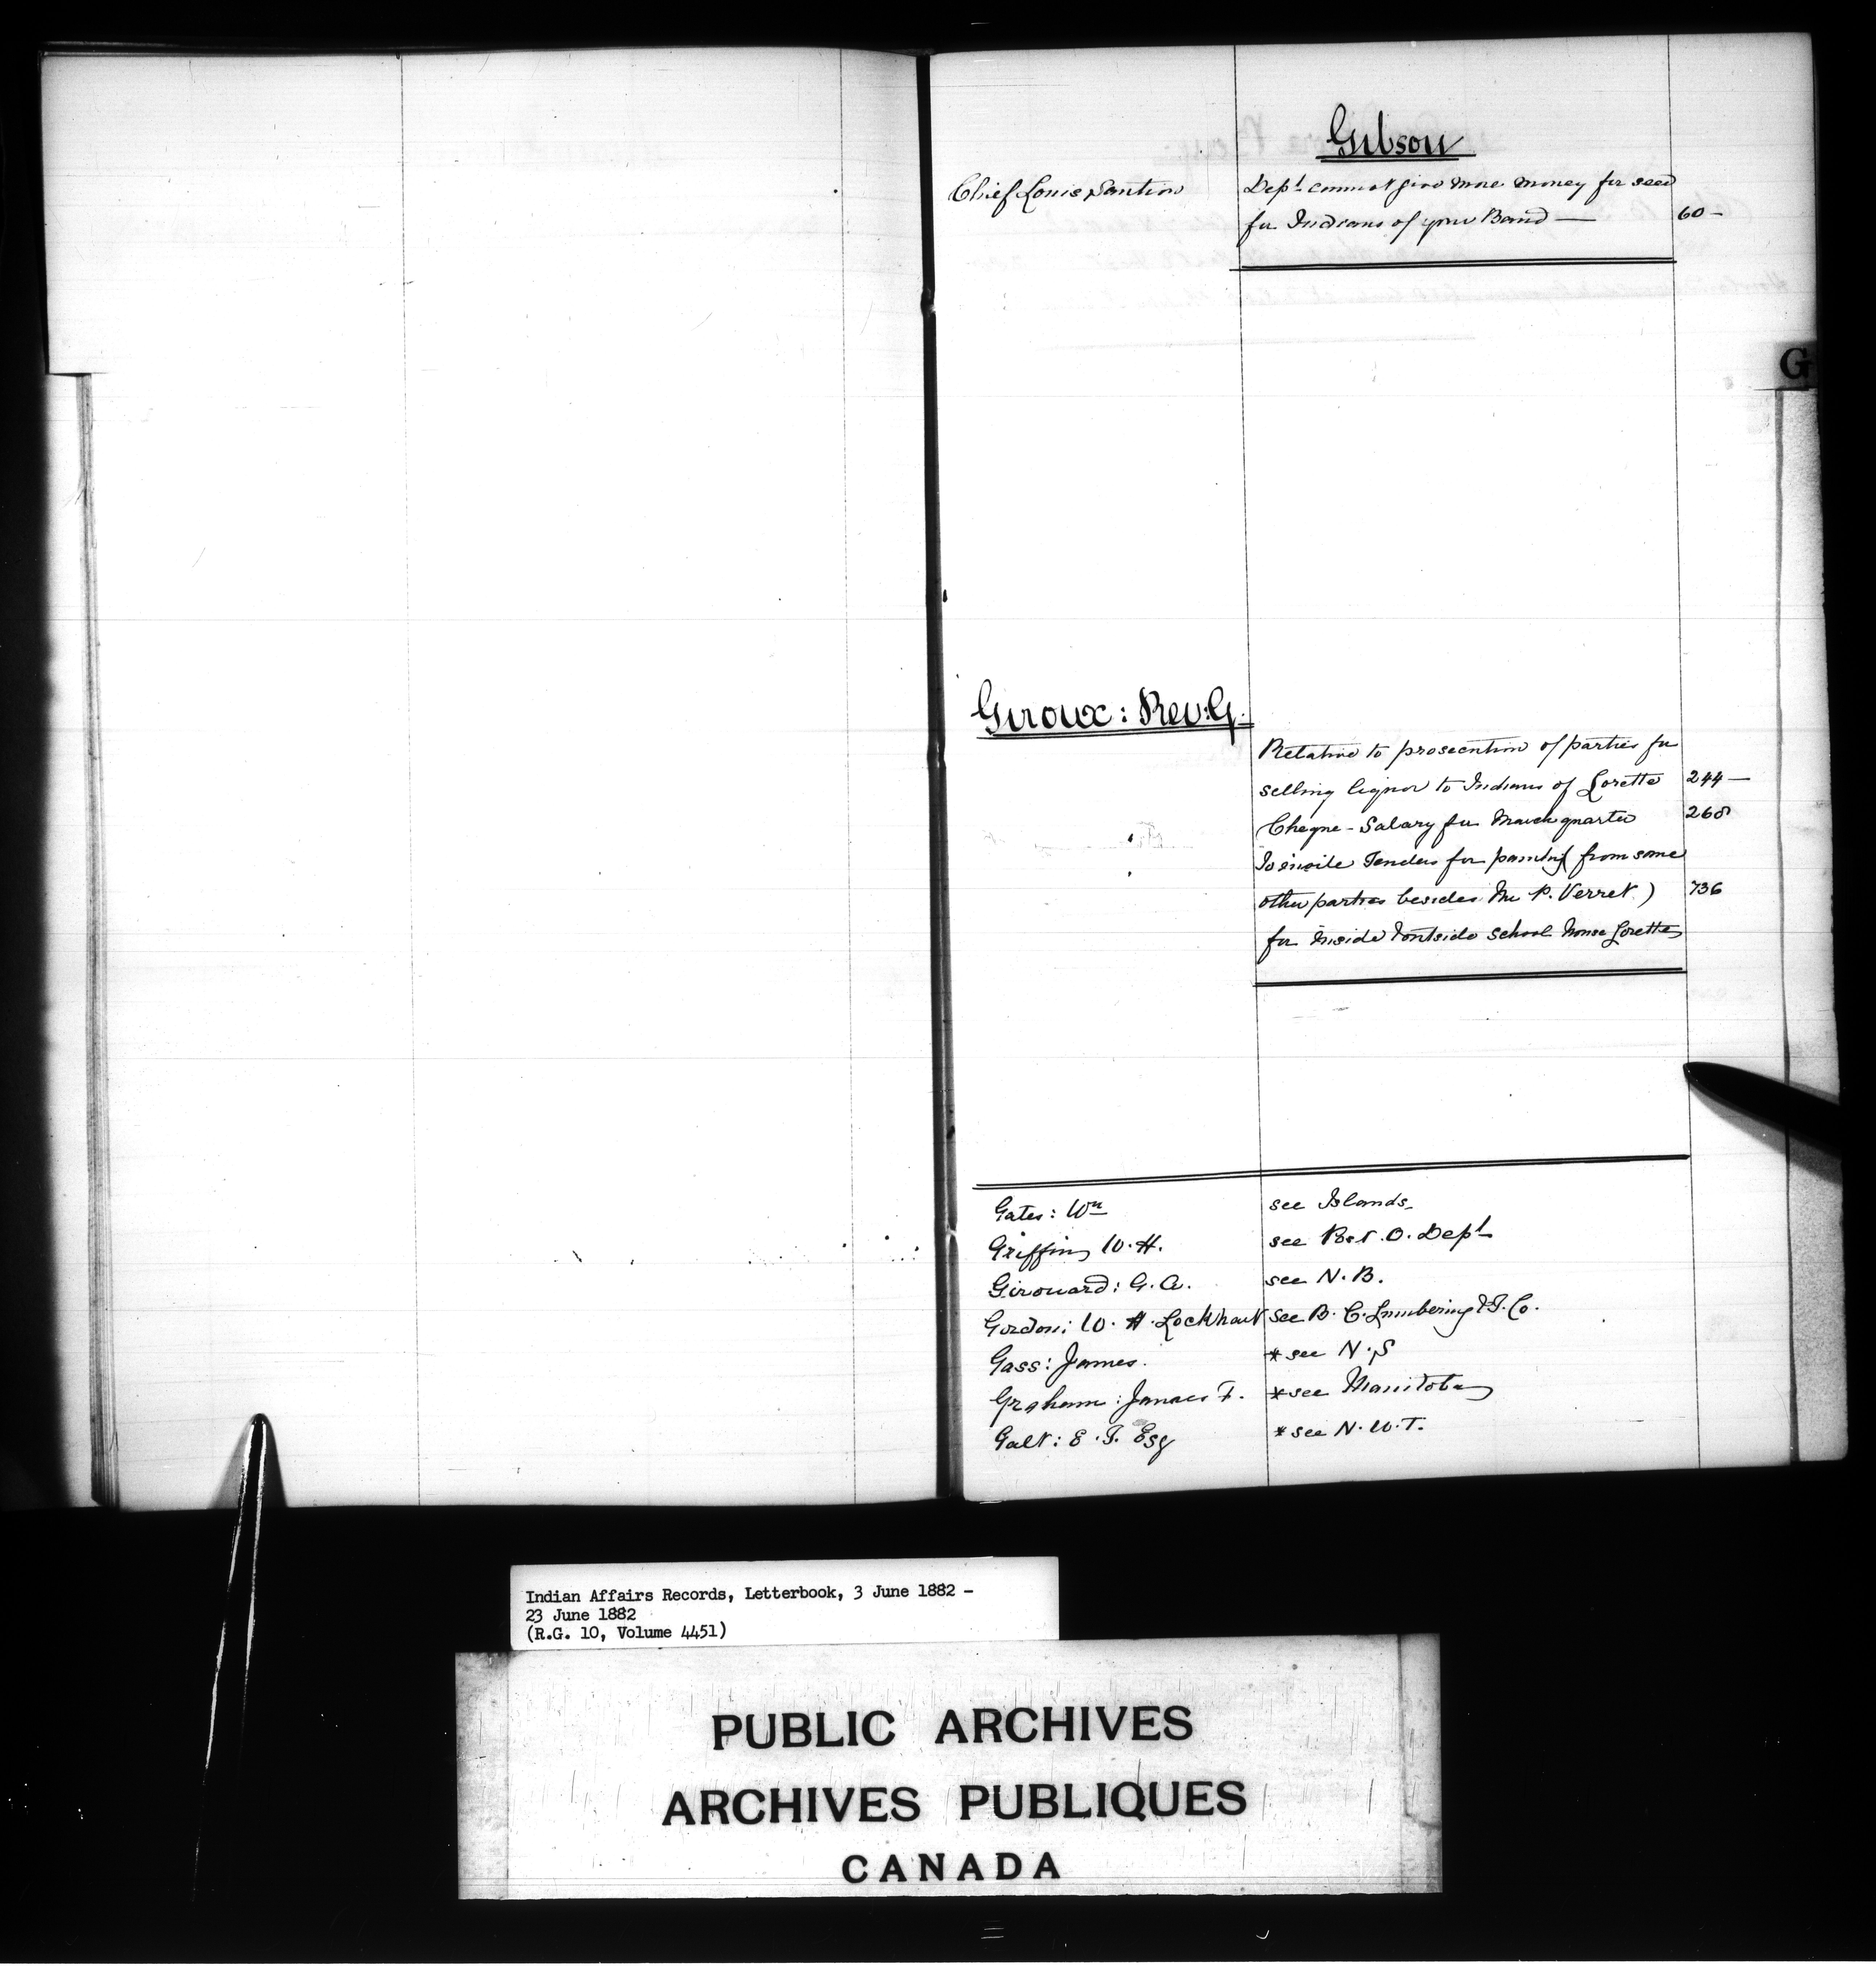 Gibson
Chief Louis Dept. cannot give more money for seed
for Indians of your Band — 60 –
G
Giroux: Rev: G.
Relative to prosecution of parties for
selling liquor to Indians of Lorette 244 —
Cheque - Salary for March quarter 268
To invite Tenders for painting (from some
other parties besides Mr P. Verret) 736
for inside & outside School House Lorette
Gates: Wm see Islands.
Griffin W. H. see Post. O. Dept
Girouard: G. A. see N. B.
Gordon: W. H. Lockhart see B. C. Lumbering & T. Co.
Gass: James. * see N. S
Graham: James F. * see Manitoba
Galt: E. T. Esq * see N. W. T.
Indian Affairs Records, Letterbook, 3 June 1882 -
23 June 1882
(R.G. 10, Volume 4451)
PUBLIC ARCHIVES
ARCHIVES PUBLIQUES
CANADA